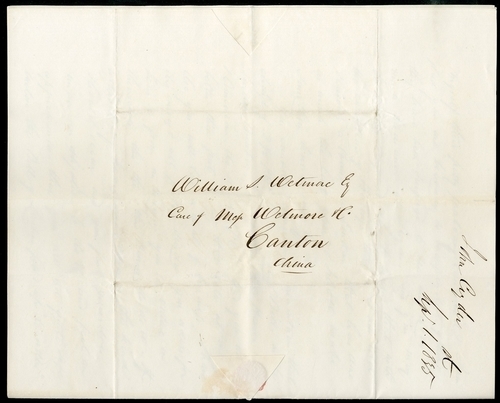 William S. Wetmore Esq
Care of Mess Wetmore & Co.
Canton
China
John Cryder
1835